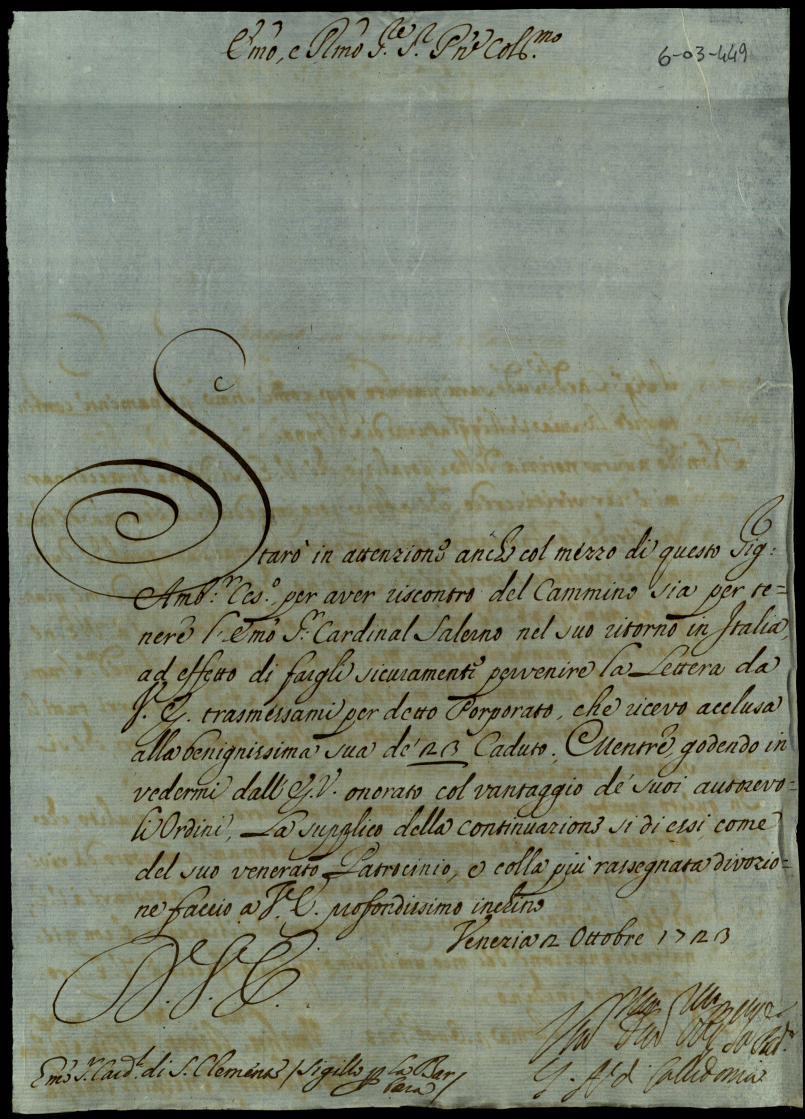 Emo, e Rmo Sre Sr Pne Colmo
6-03-449
Starò in attenzione anche col mezzo di questo Sig:
Ambr. Ces.o per aver riscontro del Cammino sia per te=
nere l'Emo Sr. Cardinal Salerno nel suo ritorno in Italia,
ad effetto di fargli sicuramente pervenire la Lettera da
V. E. trasmessami per detto Porporato, che ricevo acclusa
alla benignissima sua de' 23 Caduto. Mentre godendo in
vedermi dall'E.V. onorato col vantaggio de' suoi autorevo=
li Ordini, La supplico della continuazione sì di essi come
del suo venerato Patrocinio, e colla più rassegnata divozio=
ne faccio a V.E. profondissimo inchino
Venezia 2 Ottobre 1723
D. V. E.
Emo Sr. Card.le di S. Clemente / Sigillo pp la Bar
bara /